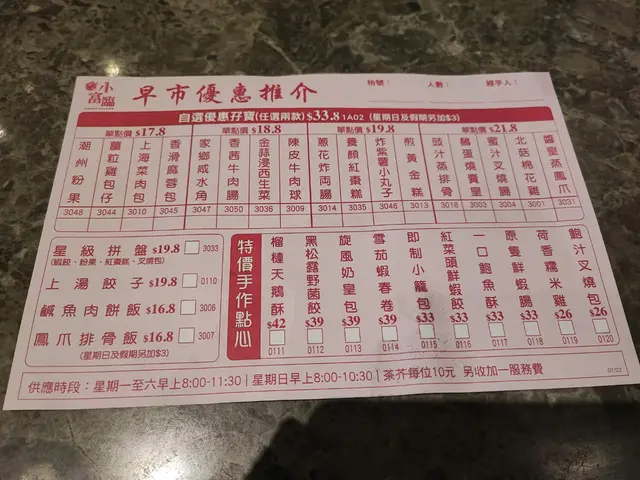 小富臨
早市優惠推介
枱號：
人數：
經手人：
自選優惠孖寶(任選兩款) $33.8 1A02 (星期日及假期另加$3)
單點價 $17.8
單點價 $18.8
單點價 $19.8
單點價 $21.8
潮州粉果
薑粒雞包仔
上海菜肉包
香滑麻蓉包
家鄉咸水角
香茜牛肉腸
金蒜浸西生菜
陳皮牛肉球
蔥花炸両腸
養顏紅棗糕
炸紫薯小丸子
煎黃金糕
豉汁蒸排骨
蜜汁叉燒腸
北菇棉花雞
醬皇蒸鳳爪
3048
3044
3010
3045
3047
3050
3036
3009
3014
3035
3046
3013
3018
3003
3004
3001
3031
星級拼盤 $19.8 3033
(蝦餃、粉果、紅棗糕、叉燒包)
上湯餃子 $19.8 0110
鹹魚肉餅飯 $16.8 3006
鳳爪排骨飯 $16.8 3007
(星期日及假期另加$3)
特價手作點心
榴槤天鵝酥 $42 0111
黑松露野菌餃 $39 0112
旋風奶皇包 $39 0113
雪茄蝦春卷 $39 0114
即制小籠包 $33 0115
紅菜頭鮮蝦餃 $33 0116
一口鮑魚酥 $33 0117
原隻鮮蝦腸 $33 0118
荷香糯米雞 $26 0119
鮑汁叉燒包 $26 0120
供應時段：星期一至六早上8:00-11:30 | 星期日早上8:00-10:30 | 茶芥每位10元 另收加一服務費
01/23